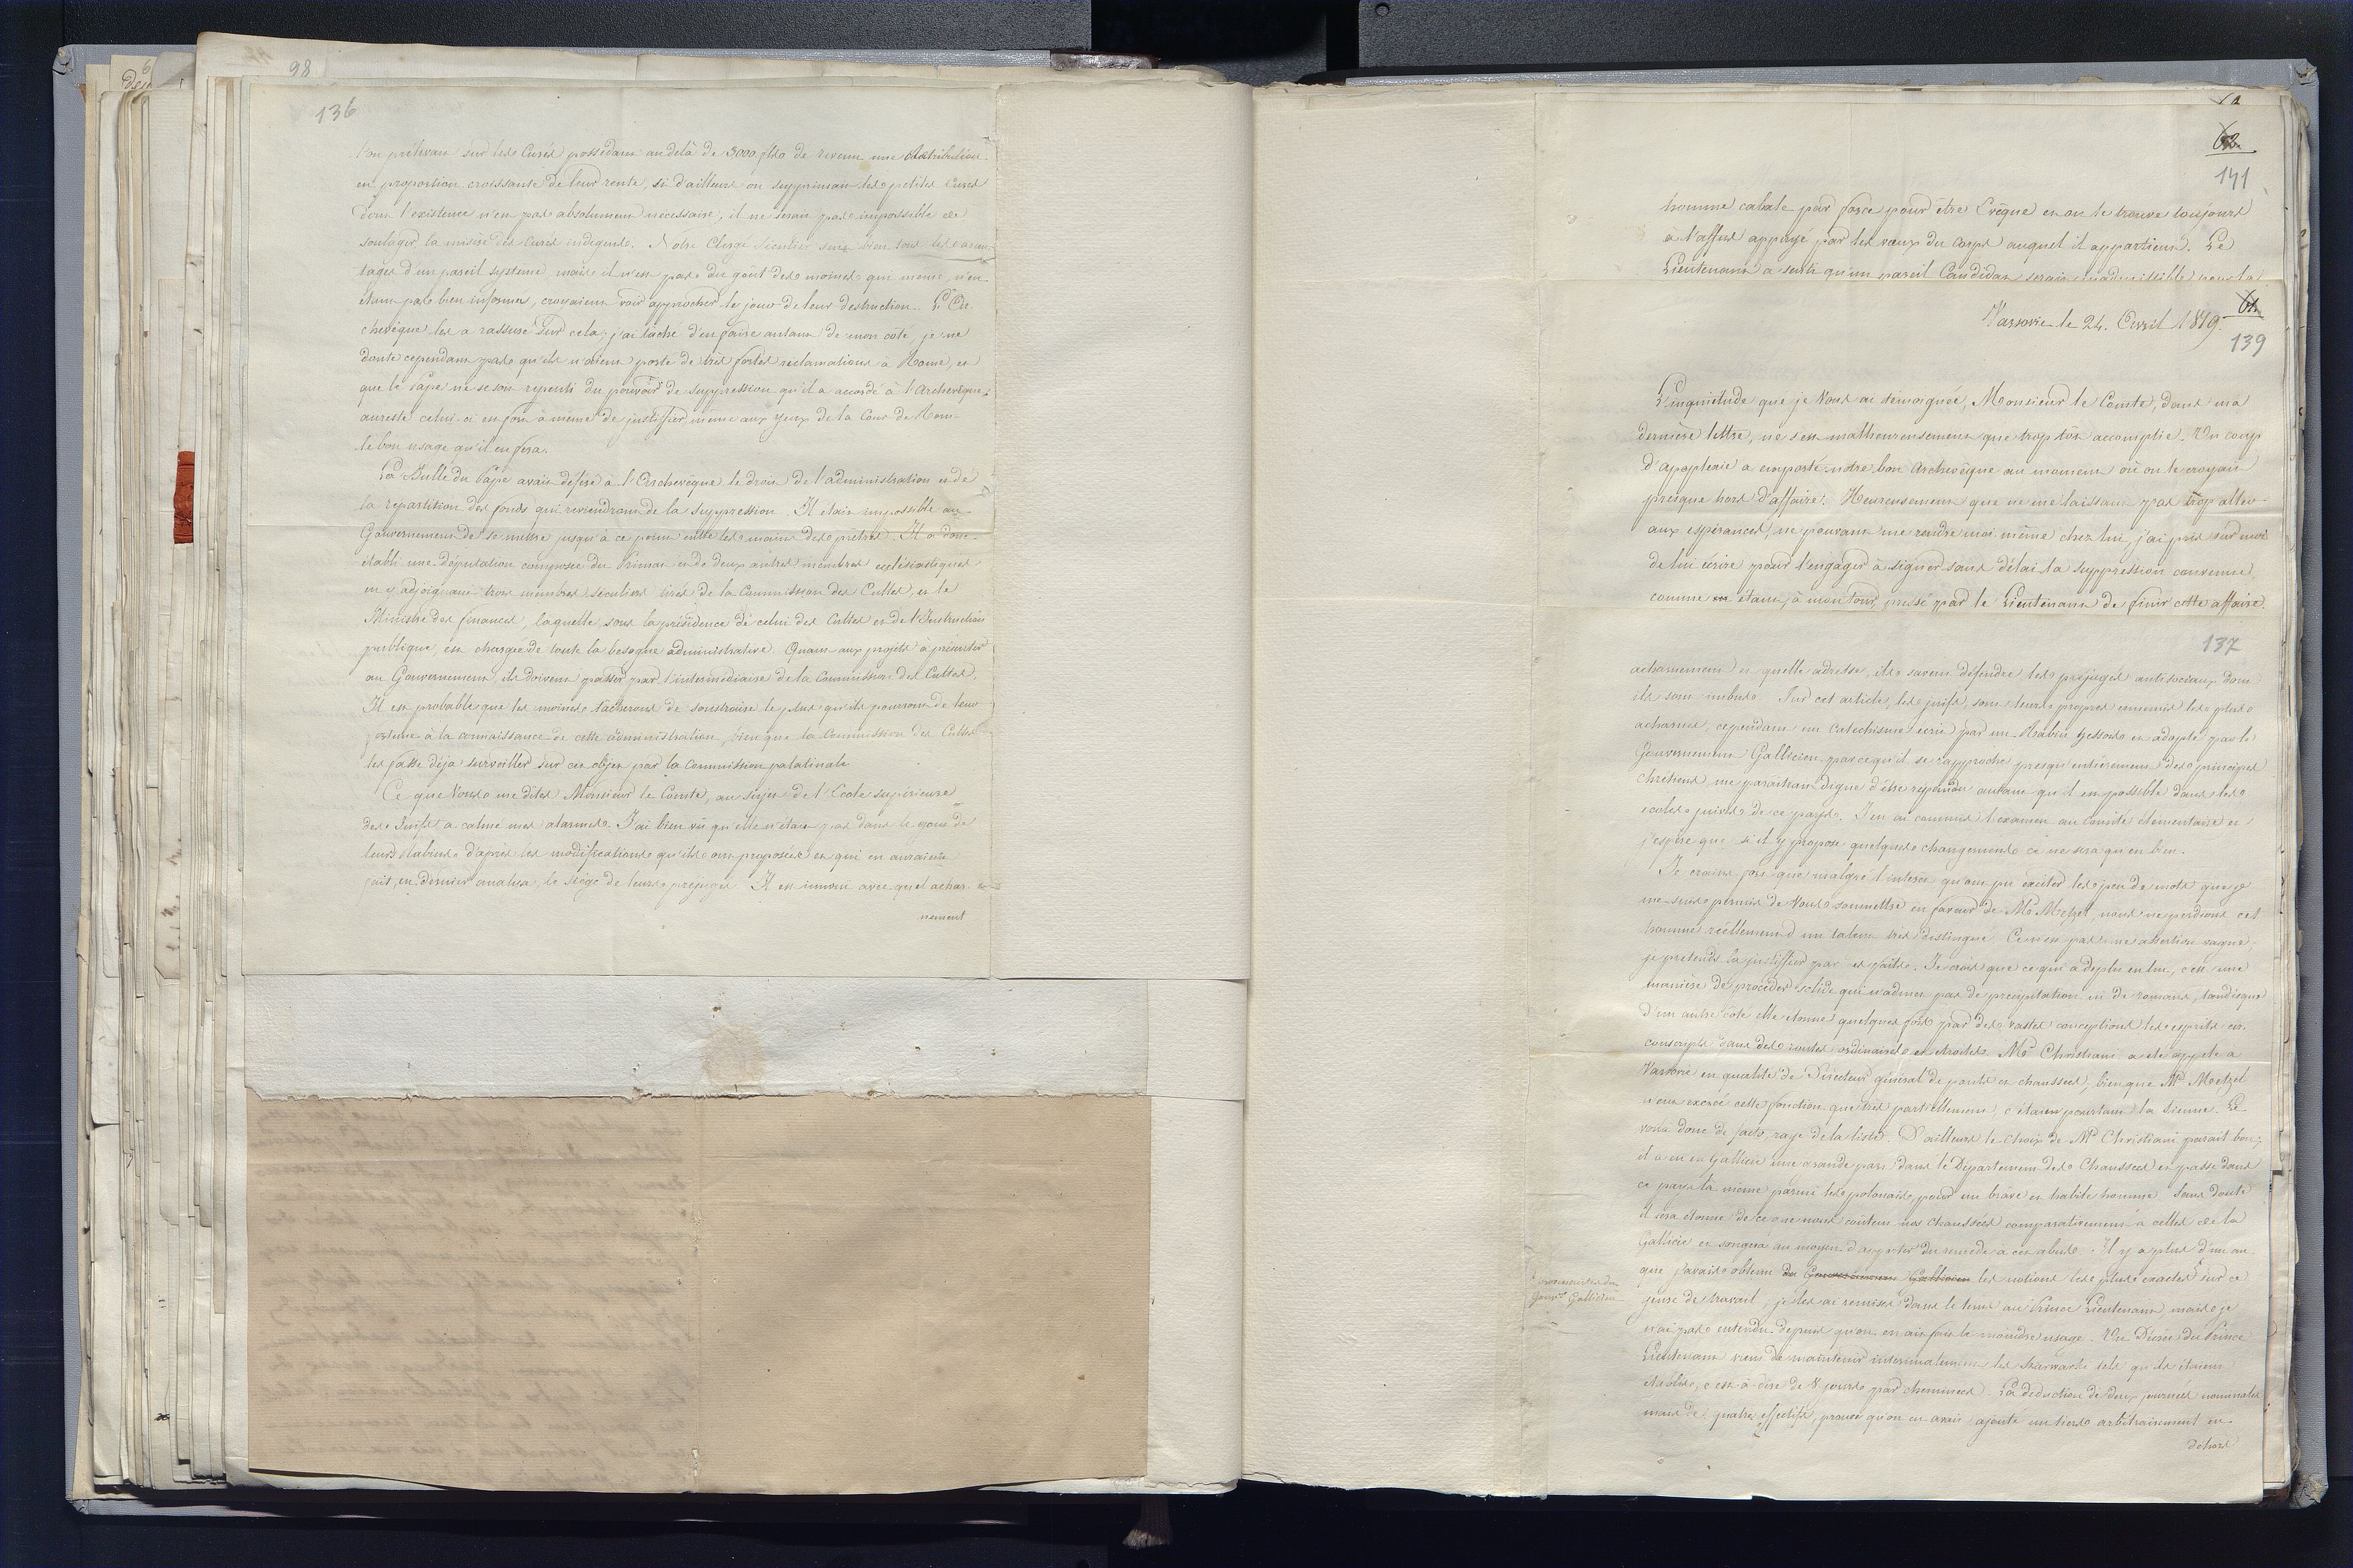 98
136
l'on prélevait sur les Curés possedant au delà de 3000 flhs de revenu une Contribution
en proportion croissante de leur rente, si d'ailleurs on supprimait les petites Cures
dont l'existence n'est pas absolument nécessaire, il ne serait pas impossible de
soulager la misère des Curés indigents. Notre Clergé séculier sent bien tous les avan-
tages d'un pareil systeme, mais il n'est pas du goût des moines qui meme, n'en
etant pas bien informés, croyaient voir approcher le jour de leur destruction. L'Ar-
chevêque les a rassuré sur cela; j'ai tâché d'en faire autant de mon coté, je ne
doute cependant pas qu'ils n'aient porté de très fortes reclamations à Rome, et
que le Pape ne se soit repenti du pouvoir de suppression qu'il a accordé à l'Archevêque;
aureste celui-ci est fort à même de justifier même aux yeux de la Cour de Rome
le bon usage qu'il en fera.
La Bulle du Pape avait déféré à l'Archevêque le droit de l'administration et de
la repartition des fonds qui reviendront de la suppression. Il etait impossible au
Gouvernement de se mettre jusqu'à ce point entre les mains des prêtres. Il a donc
établi une députation composée du Primat et de deux autres membres ecclésiastiques
en y adjoignant trois membres séculiers tirés de la Commission des Cultes, et le
Ministre des finances, laquelle sous la présidence de celui des Cultes et de l'Instruction
publique, est chargée de toute la besogne administrative. Quant aux projets à présenter
au Gouvernement, ils doivent passer par l'intermediaire de la Commission des Cultes.
Il est probable que les moines tâcheront de soustraire le plus qu'ils pourront de leur
fortune à la connaissance de cette administration, bien que la Commission des Cultes
les fasse déja surveiller sur cet objet par la Commission palatinale
Ce que Vous me dites Monsieur le Comte, au sujet de l'Ecole supérieure
des Juifs a calmé mes alarmes. J'ai bien vû qu'elle n'était pas dans le gout de
leurs Rabins d'après les modifications qu'ils ont proposées et qui en auraient
fait, en dernier analyse, le siège de leurs préjugés. Il est inouï avec quel achar-
nement
62.
141
homme cabale par force pour être Evêque et on le trouve toujours
à l'affut appuyé par les vœux du Corps auquel il appartient. Le
Lieutenant a senti qu'un pareil Candidat serait inadmissible
Varsovie le 24. Avril 1819.
61
139
L'inquiétude que je Vous ai témoignée, Monsieur le Comte, dans ma
dernière lettre, ne s'est malheureusement que trop tôt accomplie. Un coup
d'apoplexie a emporté notre bon Archevêque au moment où on le croyait
presque hors d'affaire. Heureusement que ne me laissant pas trop aller
aux espérances, ne pouvant me rendre moi même chez lui, j'ai pris sur moi
de lui écrire pour l'engager à signer sans délai la suppression convenue,
comme étant, à mon tour, pressé par le Lieutenant de finir cette affaire.
137
acharnement et quelle adresse, ils savent défendre les préjugés antisociaux dont
ils sont imbus. Sur cet article, les juifs, sont leurs propres ennemis les plus
acharnés, cependant un Catechisme écrit par un Rabin hessois et adopté par le
Gouvernement Gallicien parce qu'il se rapproche presqu'entièrement des principes
chretiens me paraitrait digne d'être repandu autant qu'il est possible dans les
ecoles juives de ce pays. J'en ai commis l'examen au Comité élementaire et
j'espère que s'il y propose quelques changements ce ne sera qu'en bien.
Je crains fort que malgré l'interet qu'ont pu exciter les peu de mots que je
me suis permis de Vous soumettre en faveur de Mr. Metzel, nous ne perdions cet
homme réellement d'un talent très distingué. Ce n'est pas une assertion vague,
je pretends la justifier par les faits. Je crois que ce qui a deplu en lui, c'est une
manière de procéder solide qui n'admet pas de precipitation ni de romans, tandisque
d'un autre coté elle etonne quelques fois par des vastes conceptions les esprits cir-
conscripts dans des routes ordinaires et étroites. Mr. Christiani a été appelé à
Varsovie en qualité de Directeur général de ponts et chaussées, bien que Mr. Metzel
n'eut exercé cette fonction que très partiellement, c'était pourtant la sienne. Le
voilà donc de facto, rayé de la liste. D'ailleurs le choix de Mr. Christiani parait bon;
il a eu en Gallicie une grande part dans le Département des Chaussées et passe dans
ce pays là même parmi les polonais, pour un brave et habile homme. Sans doute
il sera étonné de ce que nous coutent nos chaussées comparativement à celles de la
Gallicie et songera au moyen d'apporter du remède à cet abus. Il y a plus d'un an
que j'avais obtenu du Gouvernement Gallicien les notions les plus exactes sur ce
provenantes du
Gouvt. Gallicien
genre de travail, je les ai remises dans le tems au Prince Lieutenant mais je
n'ai pas entendu depuis qu'on en ait fait le moindre usage. Un Décret du Prince
Lieutenant vient de maintenir interimalement les Szarwarks tels qu'ils étaient
etablis, c'est-à-dire de 8 jours par cheminées. La deduction de deux journées nominales
mais de quatre effectifs, prouve qu'on en avait ajouté un tiers arbitrairement en
dehors